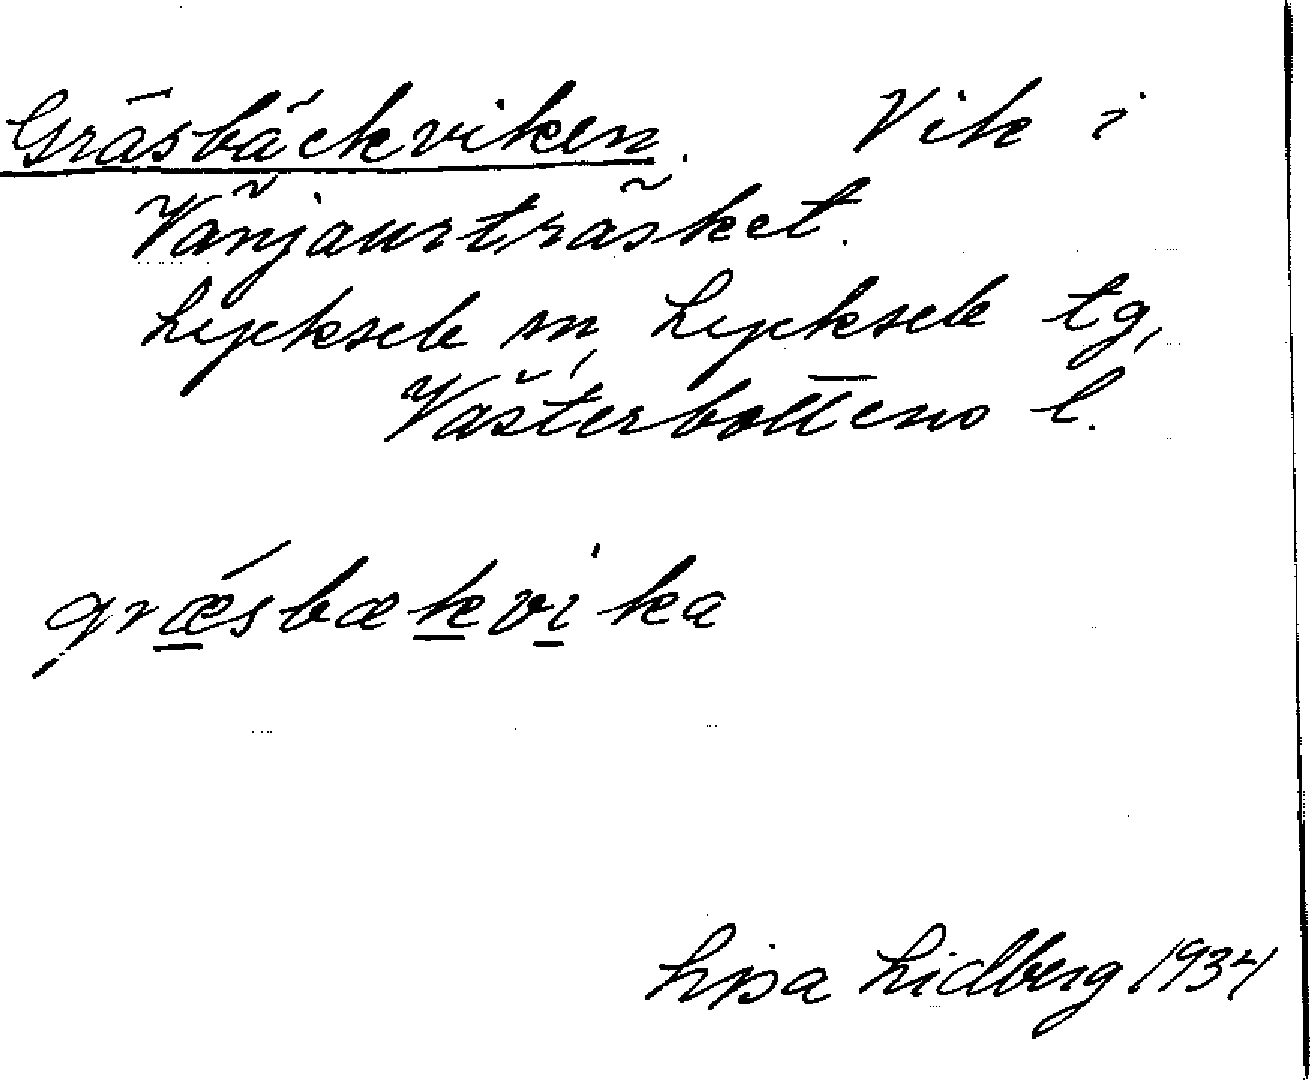 Gräsbäckviken. Vik i
Vänjaurträsket.
Lycksele sn, Lycksele tg,
Västerbottens l.
grǽsbækvika
Lisa Lidberg 1934